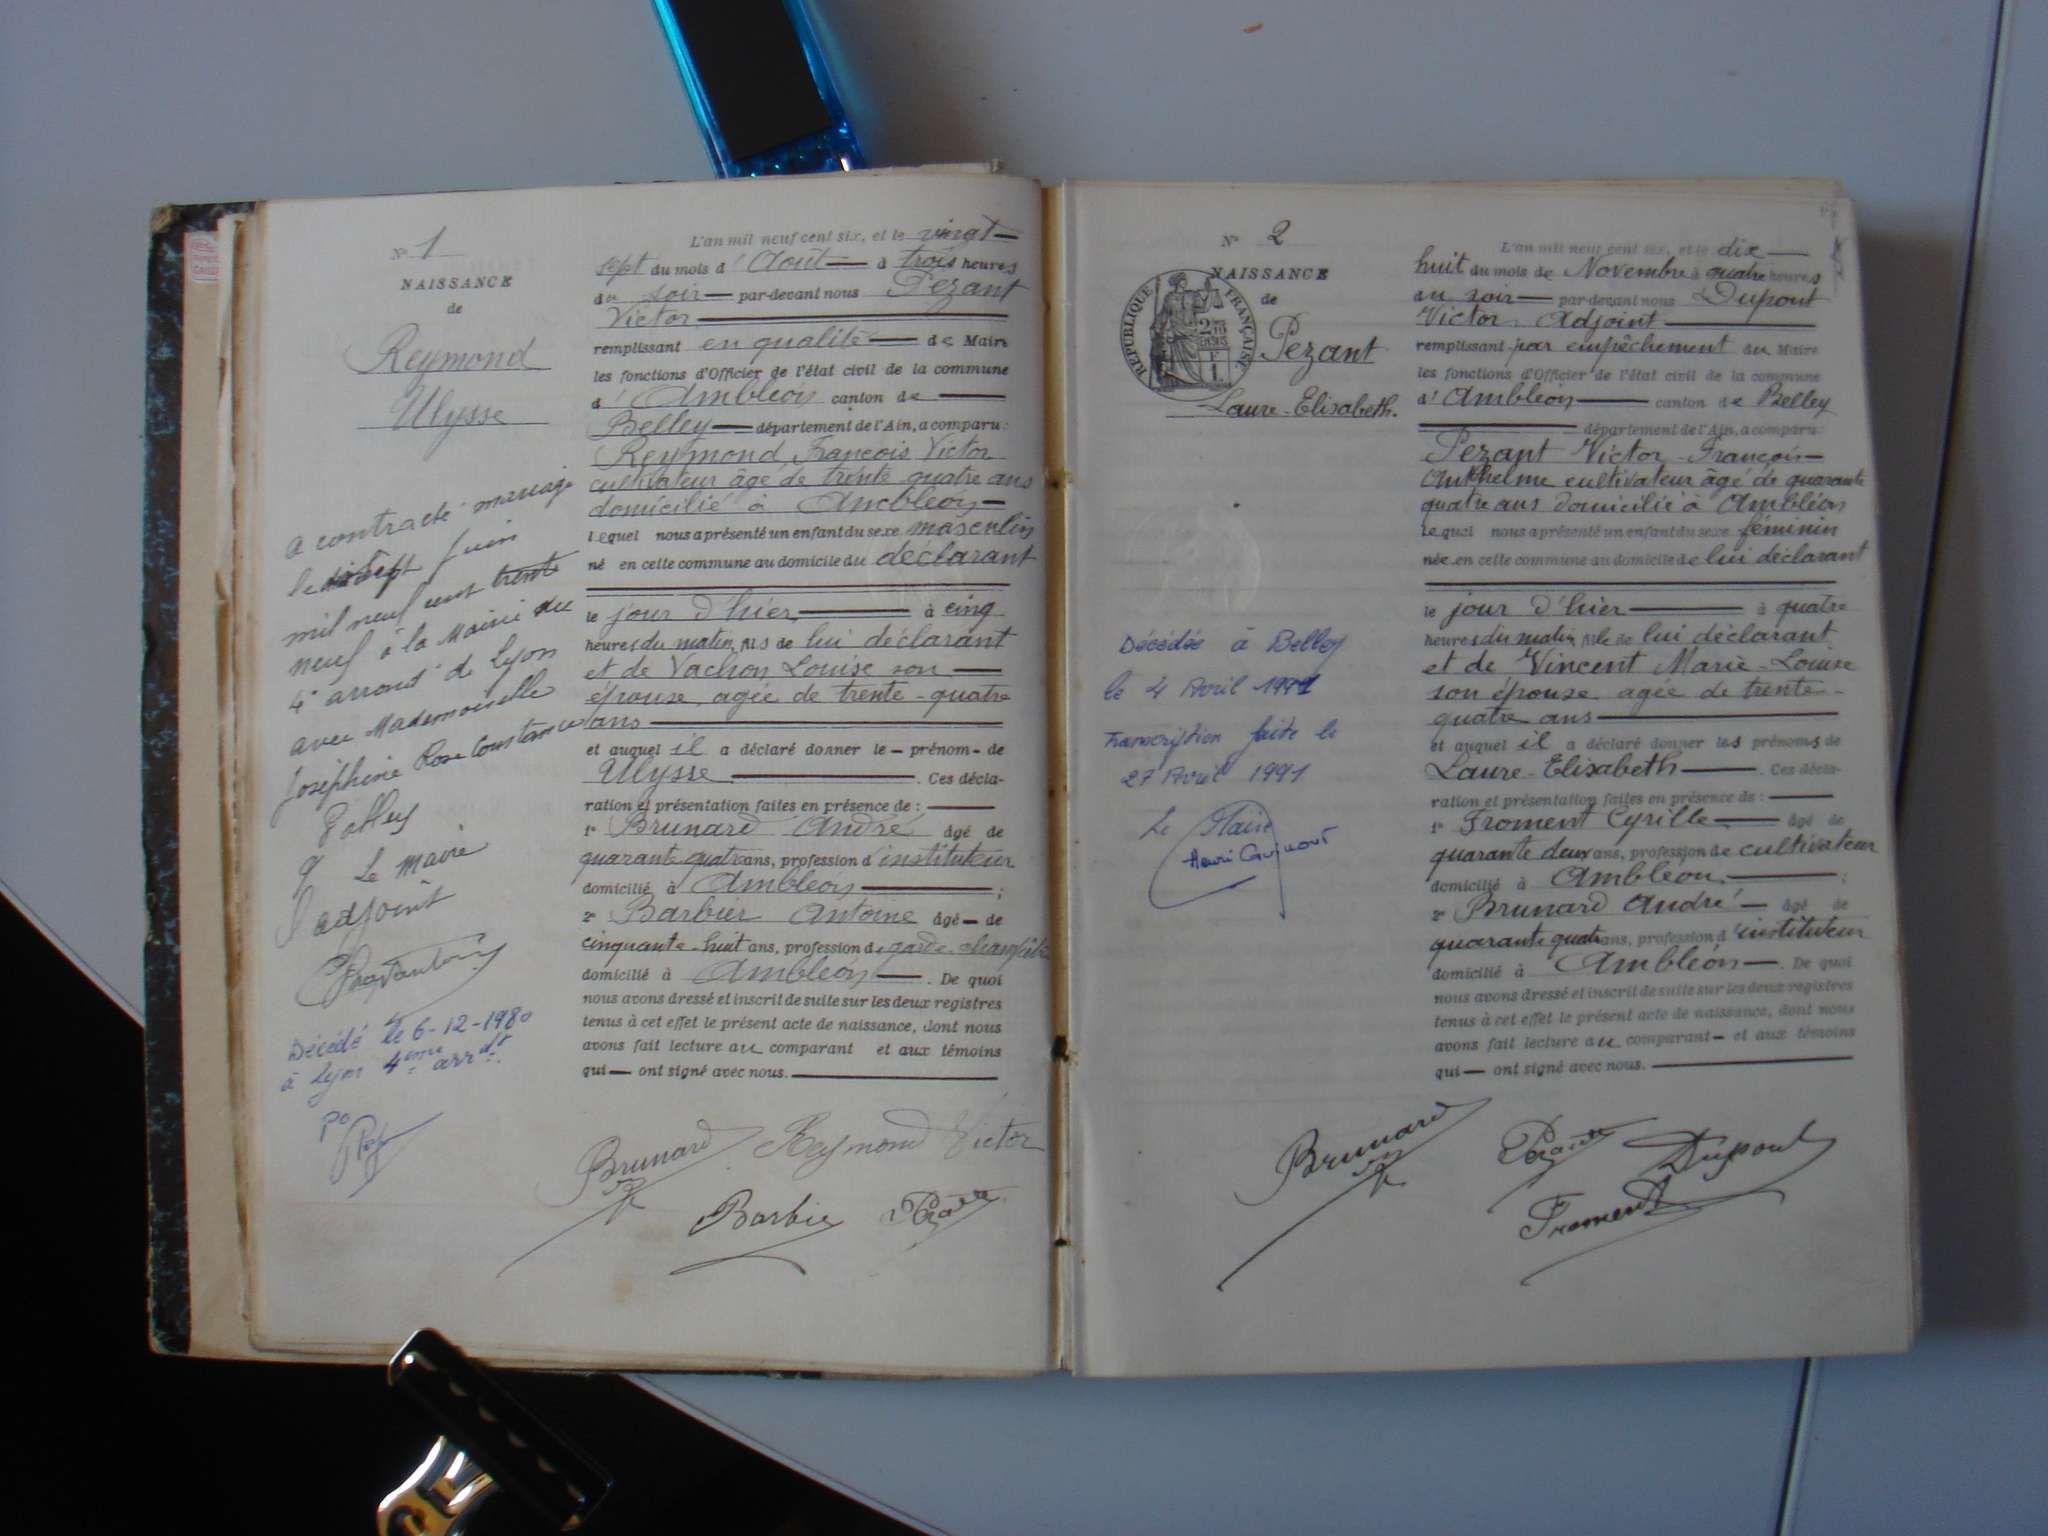 N° 1
NAISSANCE
de
Reymond
Ulysse
a contracté mariage
le
juin
mil neuf cent trente
neuf à la Mairie du
4e arront de Lyon
avec Mademoiselle
Joséphine Rose Constance
Le Maire
l'adjoint
Décédé le 6-12-1980
à Lyon 4eme arrdt.
po
L'an mil neuf cent six, et le vingt
sept du mois d'Août à trois heures
du soir par-devant nous Pezant
Victor
remplissant en qualité de Maire
les fonctions d'Officier de l'état civil de la commune
d'Ambléon canton de
Belley département de l'Ain, a comparu :
Reymond François Victor
cultivateur âgé de trente quatre ans
domicilié à Ambléon
Lequel nous a présenté un enfant du sexe masculin
né en cette commune au domicile du déclarant
le jour d'hier à cinq
heures du matin, fils de lui déclarant
et de Vachon Louise son
épouse, agée de trente-quatre
ans
et auquel il a déclaré donner le prénom de
Ulysse. Ces décla-
ration et présentation faites en présence de :
1° Brunard André âgé de
quarante quatre ans, profession d'instituteur
domicilié à Ambléon ;
2° Barbier Antoine âgé de
cinquante-huit ans, profession de garde-champêtre
domicilié à Ambléon. De quoi
nous avons dressé et inscrit de suite sur les deux registres
tenus à cet effet le présent acte de naissance, dont nous
avons fait lecture au comparant et aux témoins
qui ont signé avec nous.
Brunard Reymond Victor
Barbier Pezant
N° 2
NAISSANCE
de
RÉPUBLIQUE FRANÇAISE
Pezant
Laure-Elisabeth.
Décédée à Belley
le 4 Avril 1991
Transcription faite le
27 Avril 1991
Le Maire
Henri
L'an mil neuf cent six, et le dix
huit du mois de Novembre à quatre heures
du soir par-devant nous Dupont
Victor Adjoint
remplissant par empêchement du Maire
les fonctions d'Officier de l'état civil de la commune
d'Ambléon canton de Belley
département de l'Ain, a comparu :
Pezant Victor-François-
Anthelme cultivateur âgé de quarante
quatre ans domicilié à Ambléon
Lequel nous a présenté un enfant du sexe féminin
née en cette commune au domicile de lui déclarant
le jour d'hier à quatre
heures du matin, fille de lui déclarant
et de Vincent Marie-Louise
son épouse, agée de trente-
quatre ans
et auquel il a déclaré donner les prénoms de
Laure-Elisabeth. Ces décla-
ration et présentation faites en présence de :
1° Froment Cyrille âgé de
quarante deux ans, profession de cultivateur
domicilié à Ambléon ;
2° Brunard André âgé de
quarante quatre ans, profession d'instituteur
domicilié à Ambléon. De quoi
nous avons dressé et inscrit de suite sur les deux registres
tenus à cet effet le présent acte de naissance, dont nous
avons fait lecture au comparant et aux témoins
qui ont signé avec nous.
Brunard Pezant Dupont
Froment